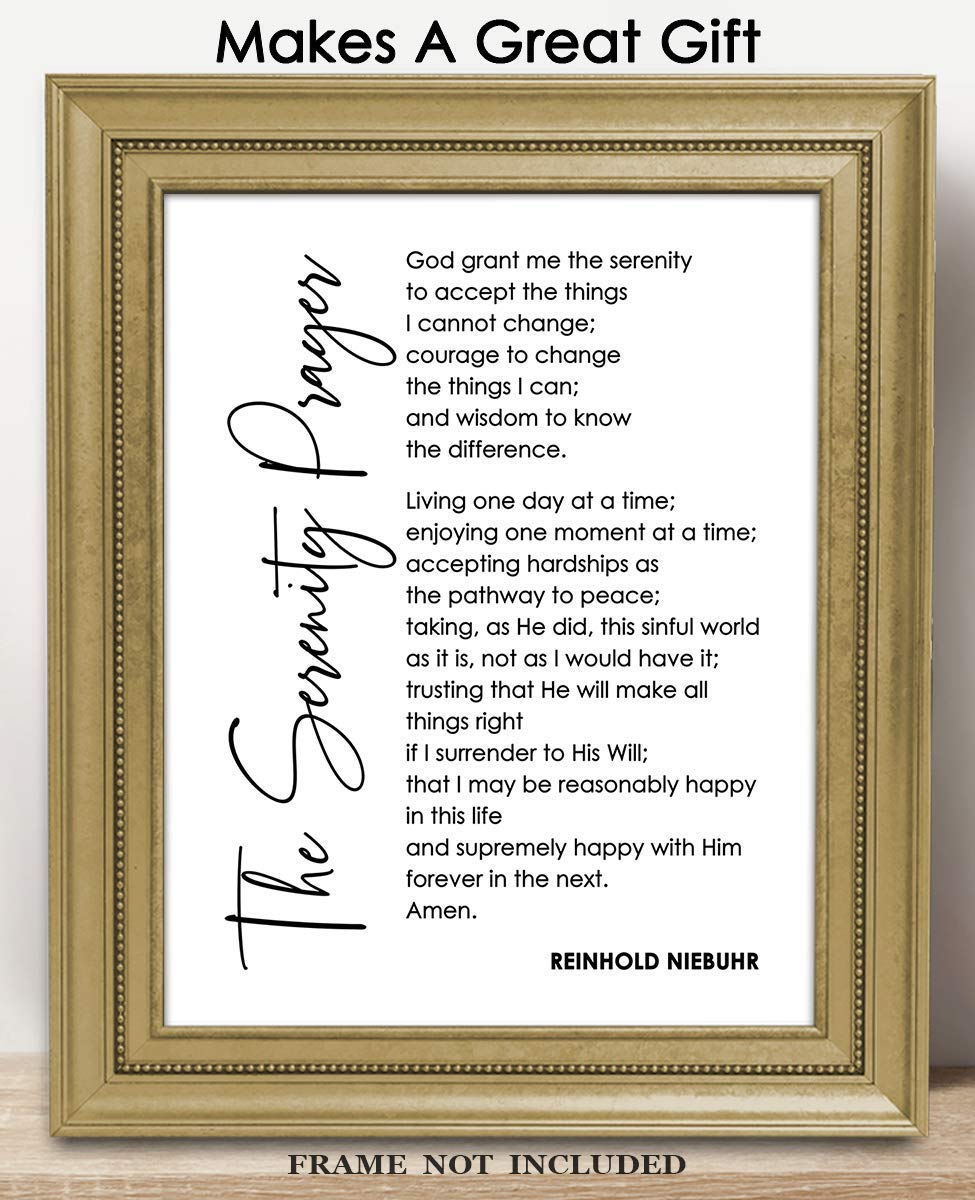 Makes A Great Gift
The Serenity Prayer
God grant me the serenity
to accept the things
I cannot change;
courage to change
the things I can;
and wisdom to know
the difference.
Living one day at a time;
enjoying one moment at a time;
accepting hardships as
the pathway to peace;
taking, as He did, this sinful world
as it is, not as I would have it;
trusting that He will make all
things right
if I surrender to His Will;
that I may be reasonably happy
in this life
and supremely happy with Him
forever in the next.
Amen.
REINHOLD NIEBUHR
FRAME NOT INCLUDED